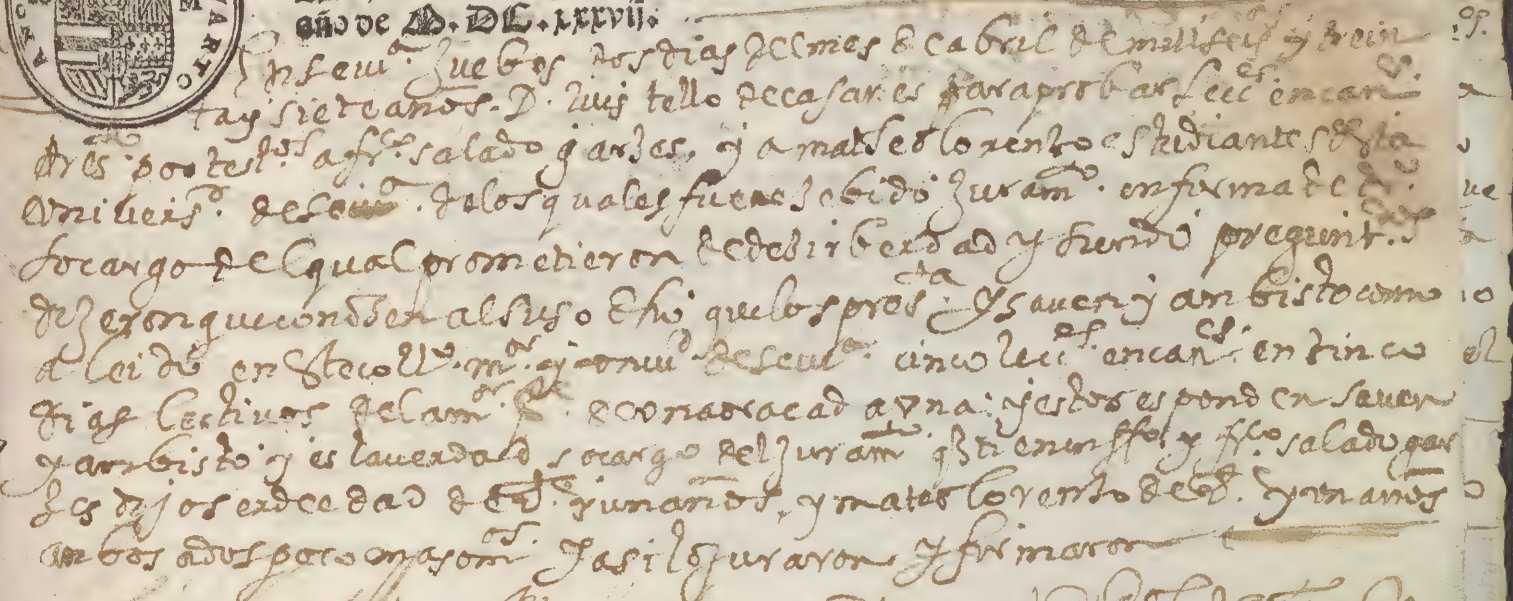 VARTO
año de M. DC. xxxvii.
En seuiª. Juebes dos dias del mes de abril de mill seisº y trein
ta y siete anos. D. luis tello de casares para probar lecc^es. en can^s.
pres^tº por test^os a fr^co salado garzes, y a matheo lorento estudiantes desta
Vnibers^d. de seuiª. de los quales fue rezebido Juram^tº. en forma de
so cargo del qual prometieron de dezir berdad y siendo pregunt^os
dixeron que conozen al suso dhº que los pres^ta. y sauen y an bisto como
a leido en ste coll^º. m^or. y vniu^d de seuiª. cinco lecc^es. en can^es. en cinco
dias lectivos de la de vna ora cada vna. y esto responden sauen
y an bisto y es la uerdad so cargo del Juram^tº q tienen ffº y fr^co salado gar
zes dijo ser de edad de y un anos, y mateo lorento de y un anos
anbos ados poco mas o m^os. y asi lo juraron y firmaron